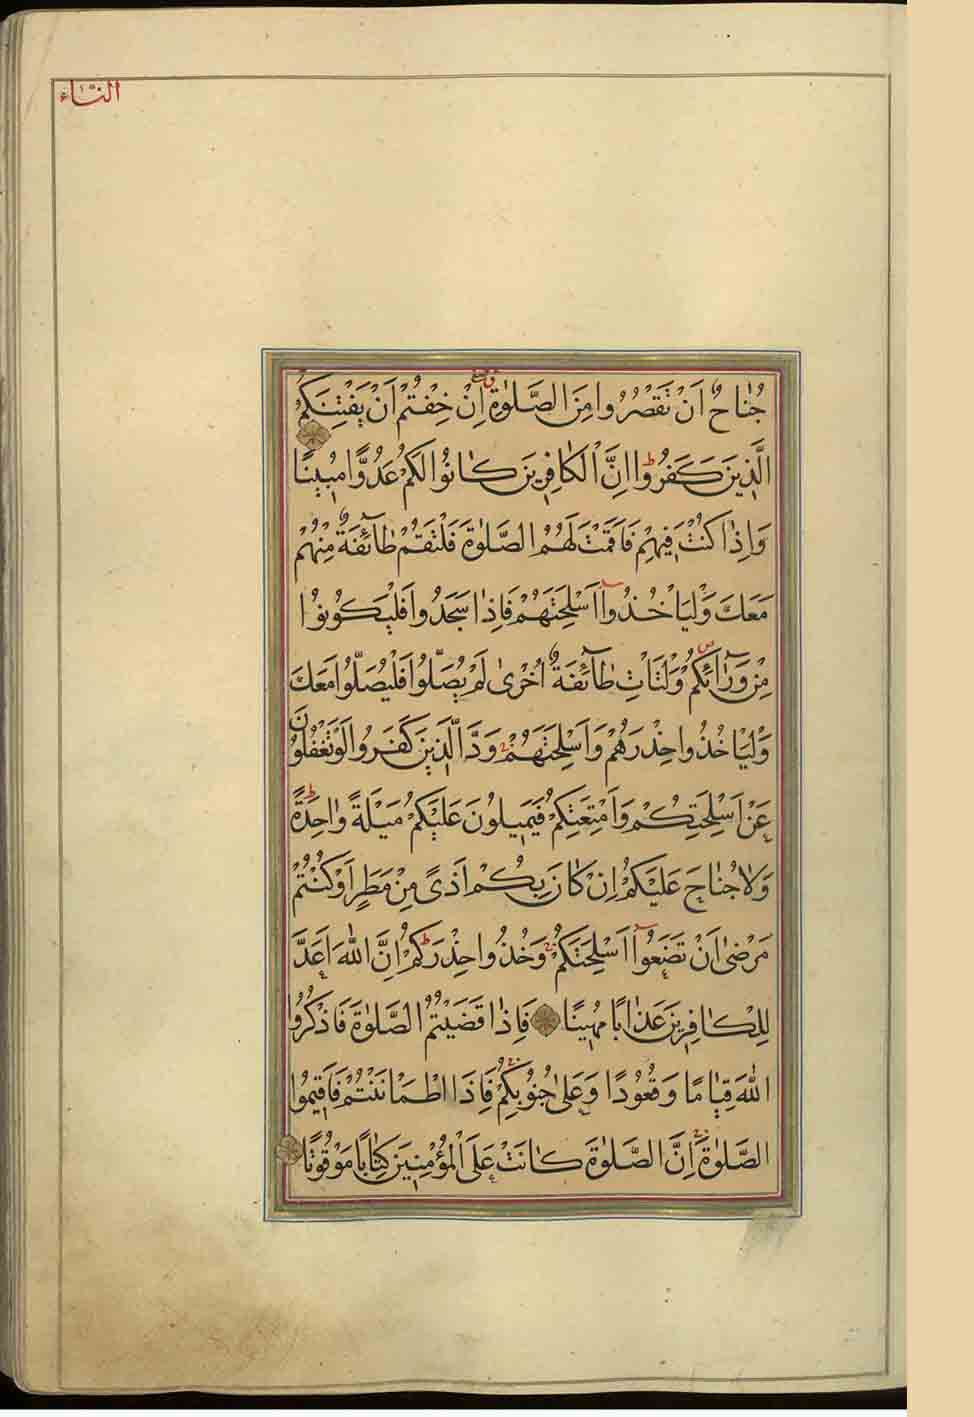 النساء
جُنَاحٌ اَنْ تَقْصُرُوا مِنَ الصَّلٰوةِ اِنْ خِفْتُمْ اَنْ يَفْتِنَكُمُ
الَّذِينَ كَفَرُوا اِنَّ الْكَافِرِينَ كَانُوا لَكُمْ عَدُوًّا مُبِينًا
وَاِذَا كُنْتَ فِيهِمْ فَاَقَمْتَ لَهُمُ الصَّلٰوةَ فَلْتَقُمْ طَآئِفَةٌ مِنْهُمْ
مَعَكَ وَلْيَاْخُذُوٓا اَسْلِحَتَهُمْ فَاِذَا سَجَدُوا فَلْيَكُونُوا
مِنْ وَرَآئِكُمْ وَلْتَاْتِ طَآئِفَةٌ اُخْرٰى لَمْ يُصَلُّوا فَلْيُصَلُّوا مَعَكَ
وَلْيَاْخُذُوا حِذْرَهُمْ وَاَسْلِحَتَهُمْ وَدَّ الَّذِينَ كَفَرُوا لَوْ تَغْفُلُونَ
عَنْ اَسْلِحَتِكُمْ وَاَمْتِعَتِكُمْ فَيَمِيلُونَ عَلَيْكُمْ مَيْلَةً وَاحِدَةً
وَلَا جُنَاحَ عَلَيْكُمْ اِنْ كَانَ بِكُمْ اَذًى مِنْ مَطَرٍ اَوْ كُنْتُمْ
مَرْضٰى اَنْ تَضَعُوٓا اَسْلِحَتَكُمْ وَخُذُوا حِذْرَكُمْ اِنَّ اللّٰهَ اَعَدَّ
لِلْكَافِرِينَ عَذَابًا مُهِينًا فَاِذَا قَضَيْتُمُ الصَّلٰوةَ فَاذْكُرُوا
اللّٰهَ قِيَامًا وَقُعُودًا وَعَلٰى جُنُوبِكُمْ فَاِذَا اطْمَاْنَنْتُمْ فَاَقِيمُوا
الصَّلٰوةَ اِنَّ الصَّلٰوةَ كَانَتْ عَلَى الْمُؤْمِنِينَ كِتَابًا مَوْقُوتًا